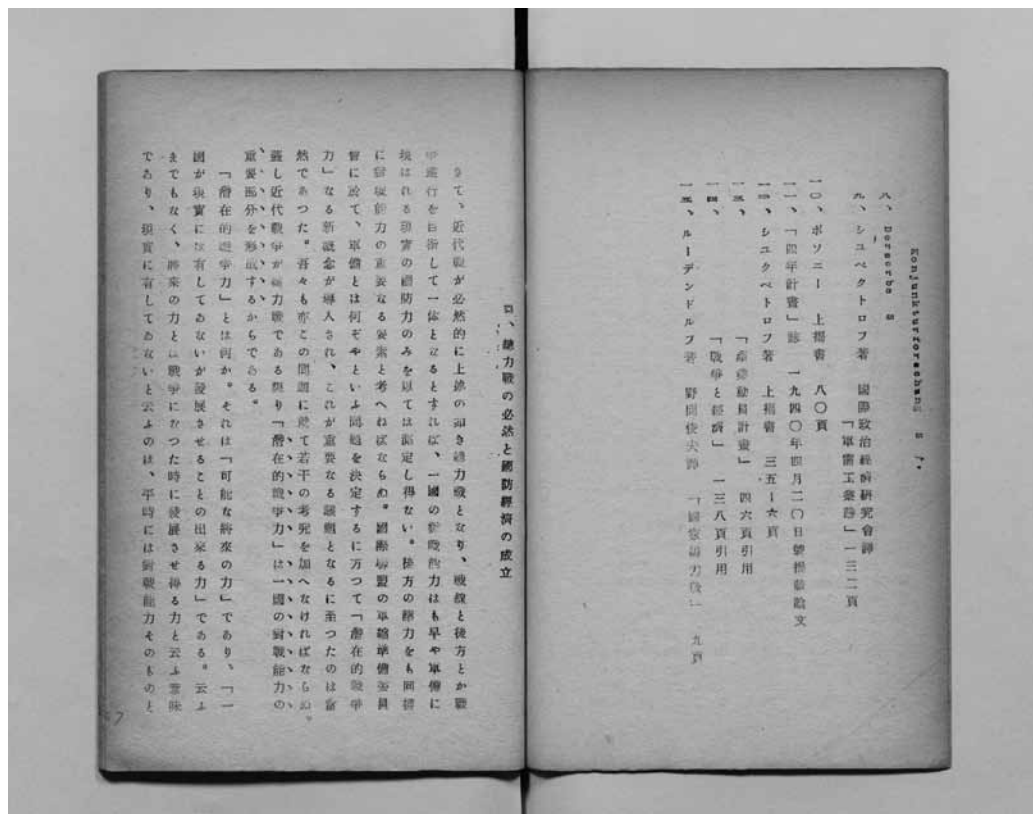 Konjunkturforschung S f.
八、Derselbe S
九、シユペクトロフ著 國際政治經濟研究會譯
「軍需工業論」一三二頁
一〇、ポソニー 上揭書 八〇頁
一一、「四年計畫」誌 一九四〇年四月二〇日號揭載論文
一二、シユペクトロフ著 上揭書 三五―六頁
一三、「産業動員計畫」 四六頁引用
一四、「戰爭と經濟」 一三八頁引用
一五、ルーデンドルフ著 野間俊夫譯 「國家總力戰」 九頁
四、總力戰の必然と國防經濟の成立
さて、近代戰が必然的に上述の如き總力戰となり、戰線と後方とが戰
爭遂行を目指して一体となるとすれば、一國の對戰能力はも早や軍備に
現はれる現實の國防力のみを以ては測定し得ない。後方の經濟力をも同樣
に對戰能力の重要なる要素と考へねばならぬ。國際聯盟の軍縮準備委員
會に於て、軍備とは何ぞやといふ問題を決定するに方つて「潜在的戰爭
力」なる新概念が導入され、これが重要なる議題となるに至つたのは當
然であつた。吾々も亦この問題に就て若干の考究を加へなければならぬ。
蓋し近代戰爭が總力戰である限り「潜在的戰爭力」は一國の對戰能力の
重要部分を形成するからである。
「潜在的戰爭力」とは何か。それは「可能な將來の力」であり、「一
國が現實には有してゐないが發展させることの出來る力」である。云ふ
までもなく、將來の力とは戰爭になつた時に發展させ得る力と云ふ意味
であり、現實に有してゐないと云ふのは、平時には對戰能力そのものと